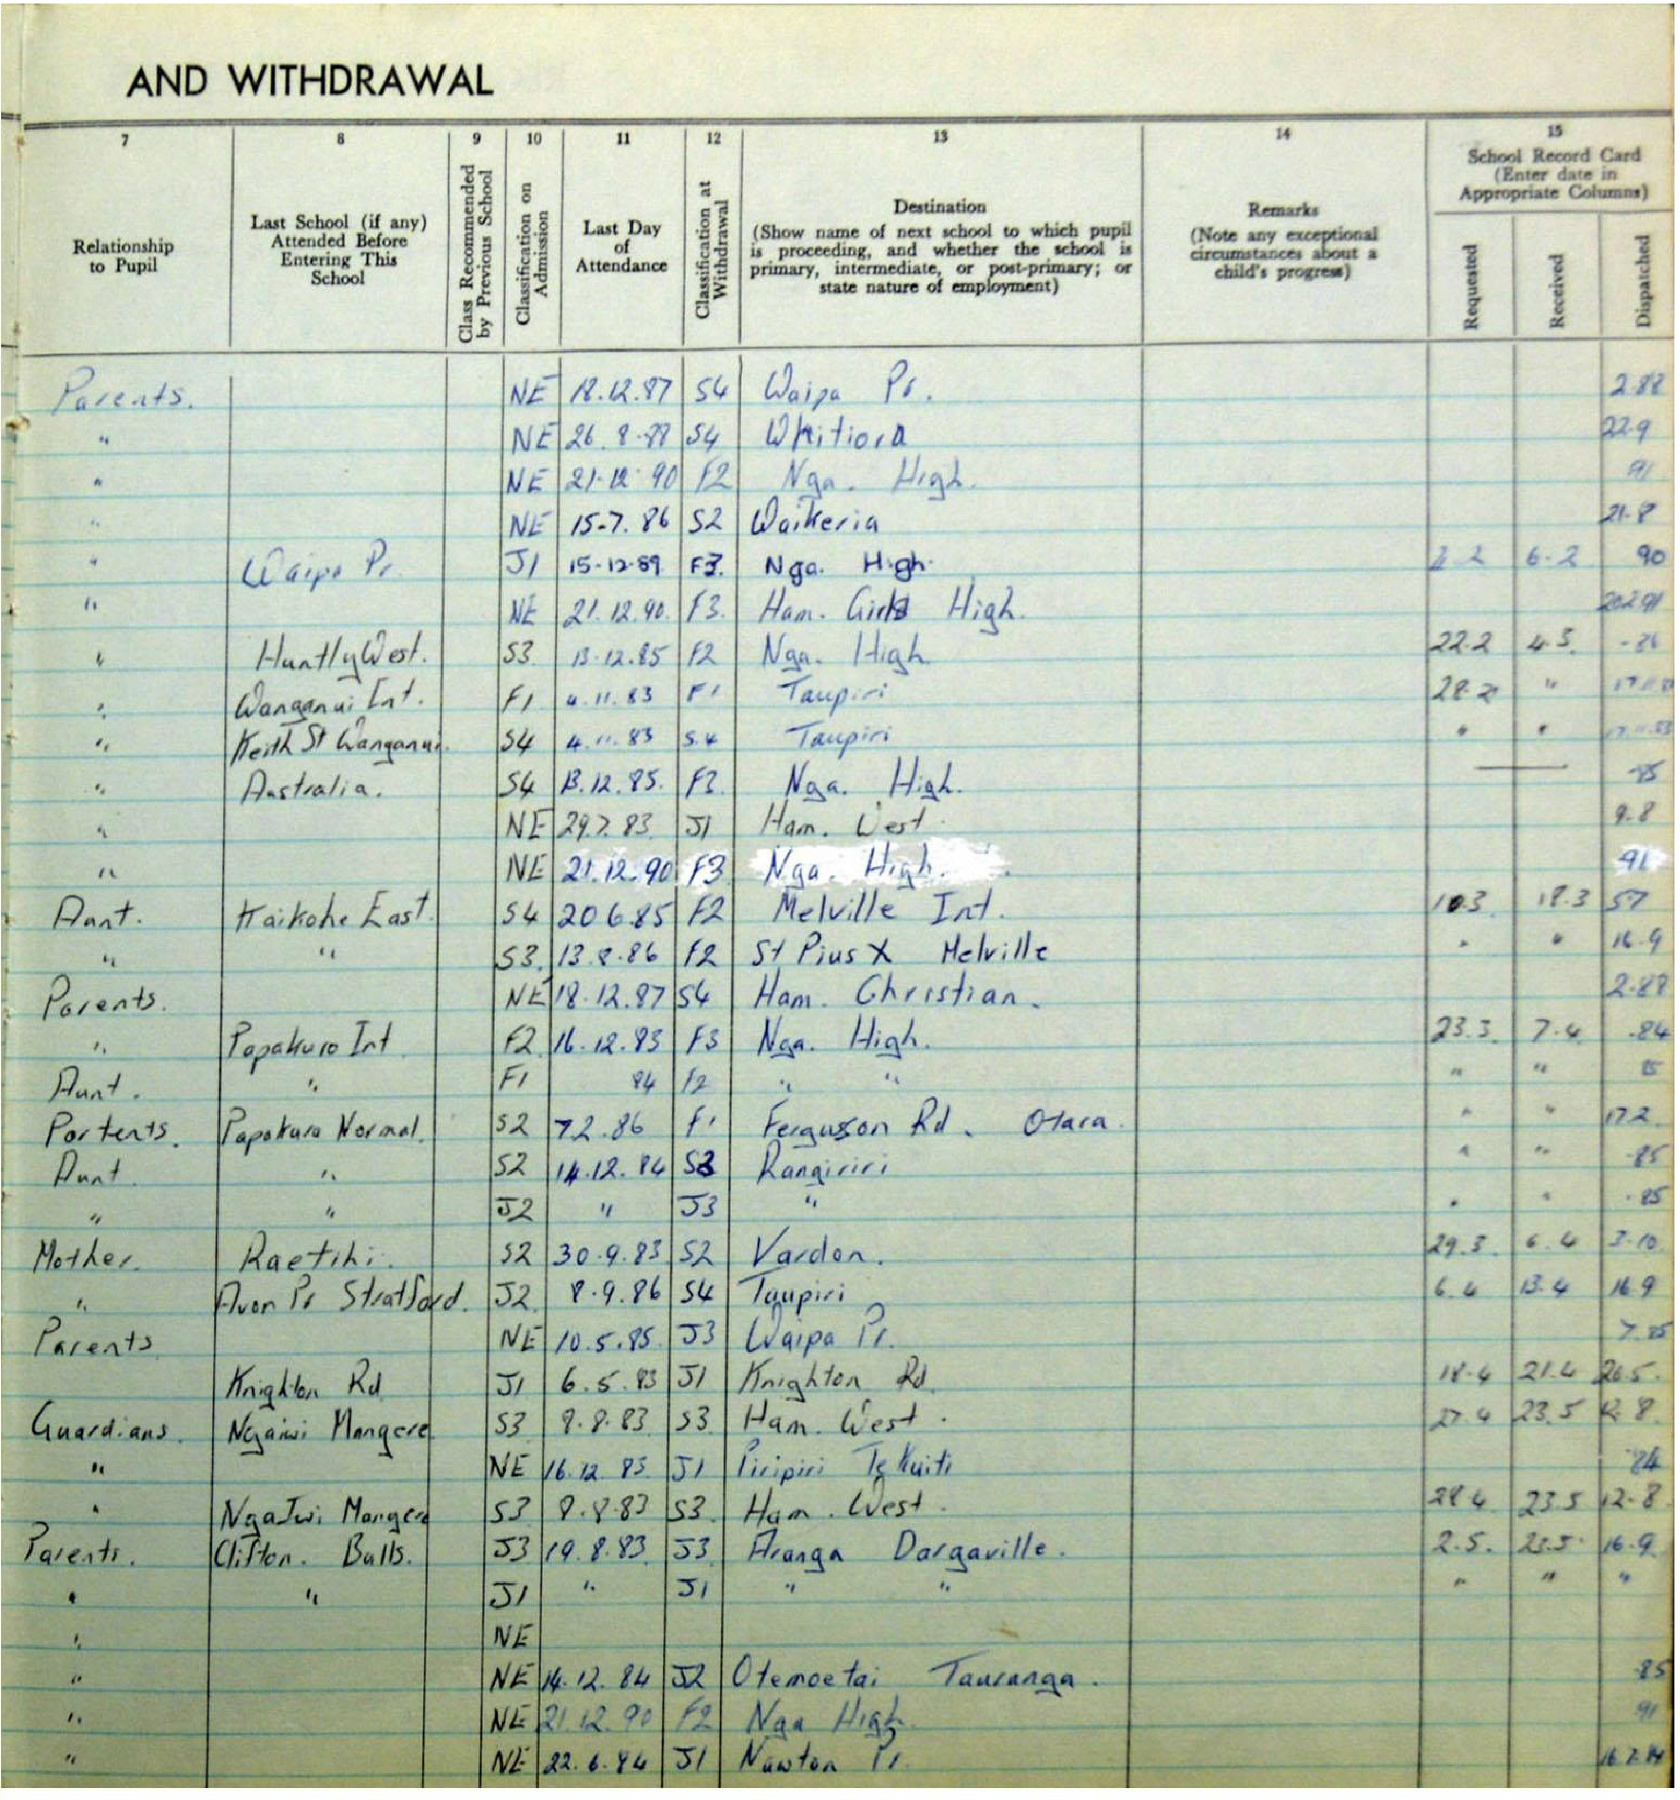 AND WITHDRAWAL
7 8 9 10 11 12 13 14 15
Relationship to Pupil
Last School (if any) Attended Before Entering This School
Class Recommended by Previous School
Classification on Admission
Last Day of Attendance
Classification at Withdrawal
Destination
(Show name of next school to which pupil is proceeding, and whether the school is primary, intermediate, or post-primary; or state nature of employment)
Remarks
(Note any exceptional circumstances about a child's progress)
School Record Card
(Enter date in Appropriate Columns)
Requested Received Dispatched
Parents. NE 18.12.87 S4 Waipa Pr. 2.88
" NE 26.8.88 S4 Whitiora 22.9
" NE 21.12.90 F2 Nga. High. 91
" NE 15-7.86 S2 Waikeria 21.8
" Waipa Pr J1 15-12-89 F3. Nga. High. 2 6.2 90
" NE 21.12.90. F3. Ham. Girls High.
" Huntly West. S3 13.12.85 F2 Nga. High 22.2 4.3.
" Wanganui Int. F1 4.11.83 F1 Taupiri 28.2 "
" Keith St Wanganui. S4 4.11.83 S.4 Taupiri " "
" Australia. S4 13.12.85. Nga. High. 85
" NE 29.7.83 J1 Ham. West. 9.8
" NE 21.12.90 F3 Nga. High. 91
Aunt. Kaikohe East. S4 20 6.85 F2 Melville Int. 10.3 18.3 57
" " S3. 13.8.86 F2 St Pius X Melville " " 16.9
Parents. NE 18.12.87 S4 Ham. Christian. 2.88
" Papakura Int F2 16.12.83 F3 Nga. High. 23.3. 7.4 .84
Aunt. " F1 84 F2 " " " " 85
Partents. Papakura Normal. S2 7 2.86 F1 Ferguson Rd. Otara. " " 17.2.
Aunt " S2 14.12.84 S3 Rangiriri " " 85
" " J2 " J3 " " " .85
Mother. Raetihi. S2 30.9.83 S2 Vardon. 29.3. 6.4 3.10
" Avon Pr Stratford. J2 8.9.86 S4 Taupiri 6.4 13.4 16 9
Parents NE 10.5.85. J3 Waipa Pr. 7.85
Knighton Rd J1 6.5.83 J1 Knighton Rd. 18.4 21.4 20.5.
Guardians. Ngaiwi Mangere S3 9.8.83 S3 Ham. West. 27.4 23.5 12 8
" NE 16.12.83 J1 Piripiri Te Kuiti 84
" NgaIwi Mangere S3 8.8.83 S3 Ham. West. 28 4 23.5 12.8
Parents. Clifton. Bulls. J3 19.8.83 J3 Aranga Dargaville. 2.5. 23.5. 16.9
" " J1 " J1 " " " " "
" NE
" NE 14.12.84 J2 Otemoetai Tauranga. 85
" NE 21.12.90 F2 Nga High. 91
" NE 22.6.84 J1 Nawton Pr.